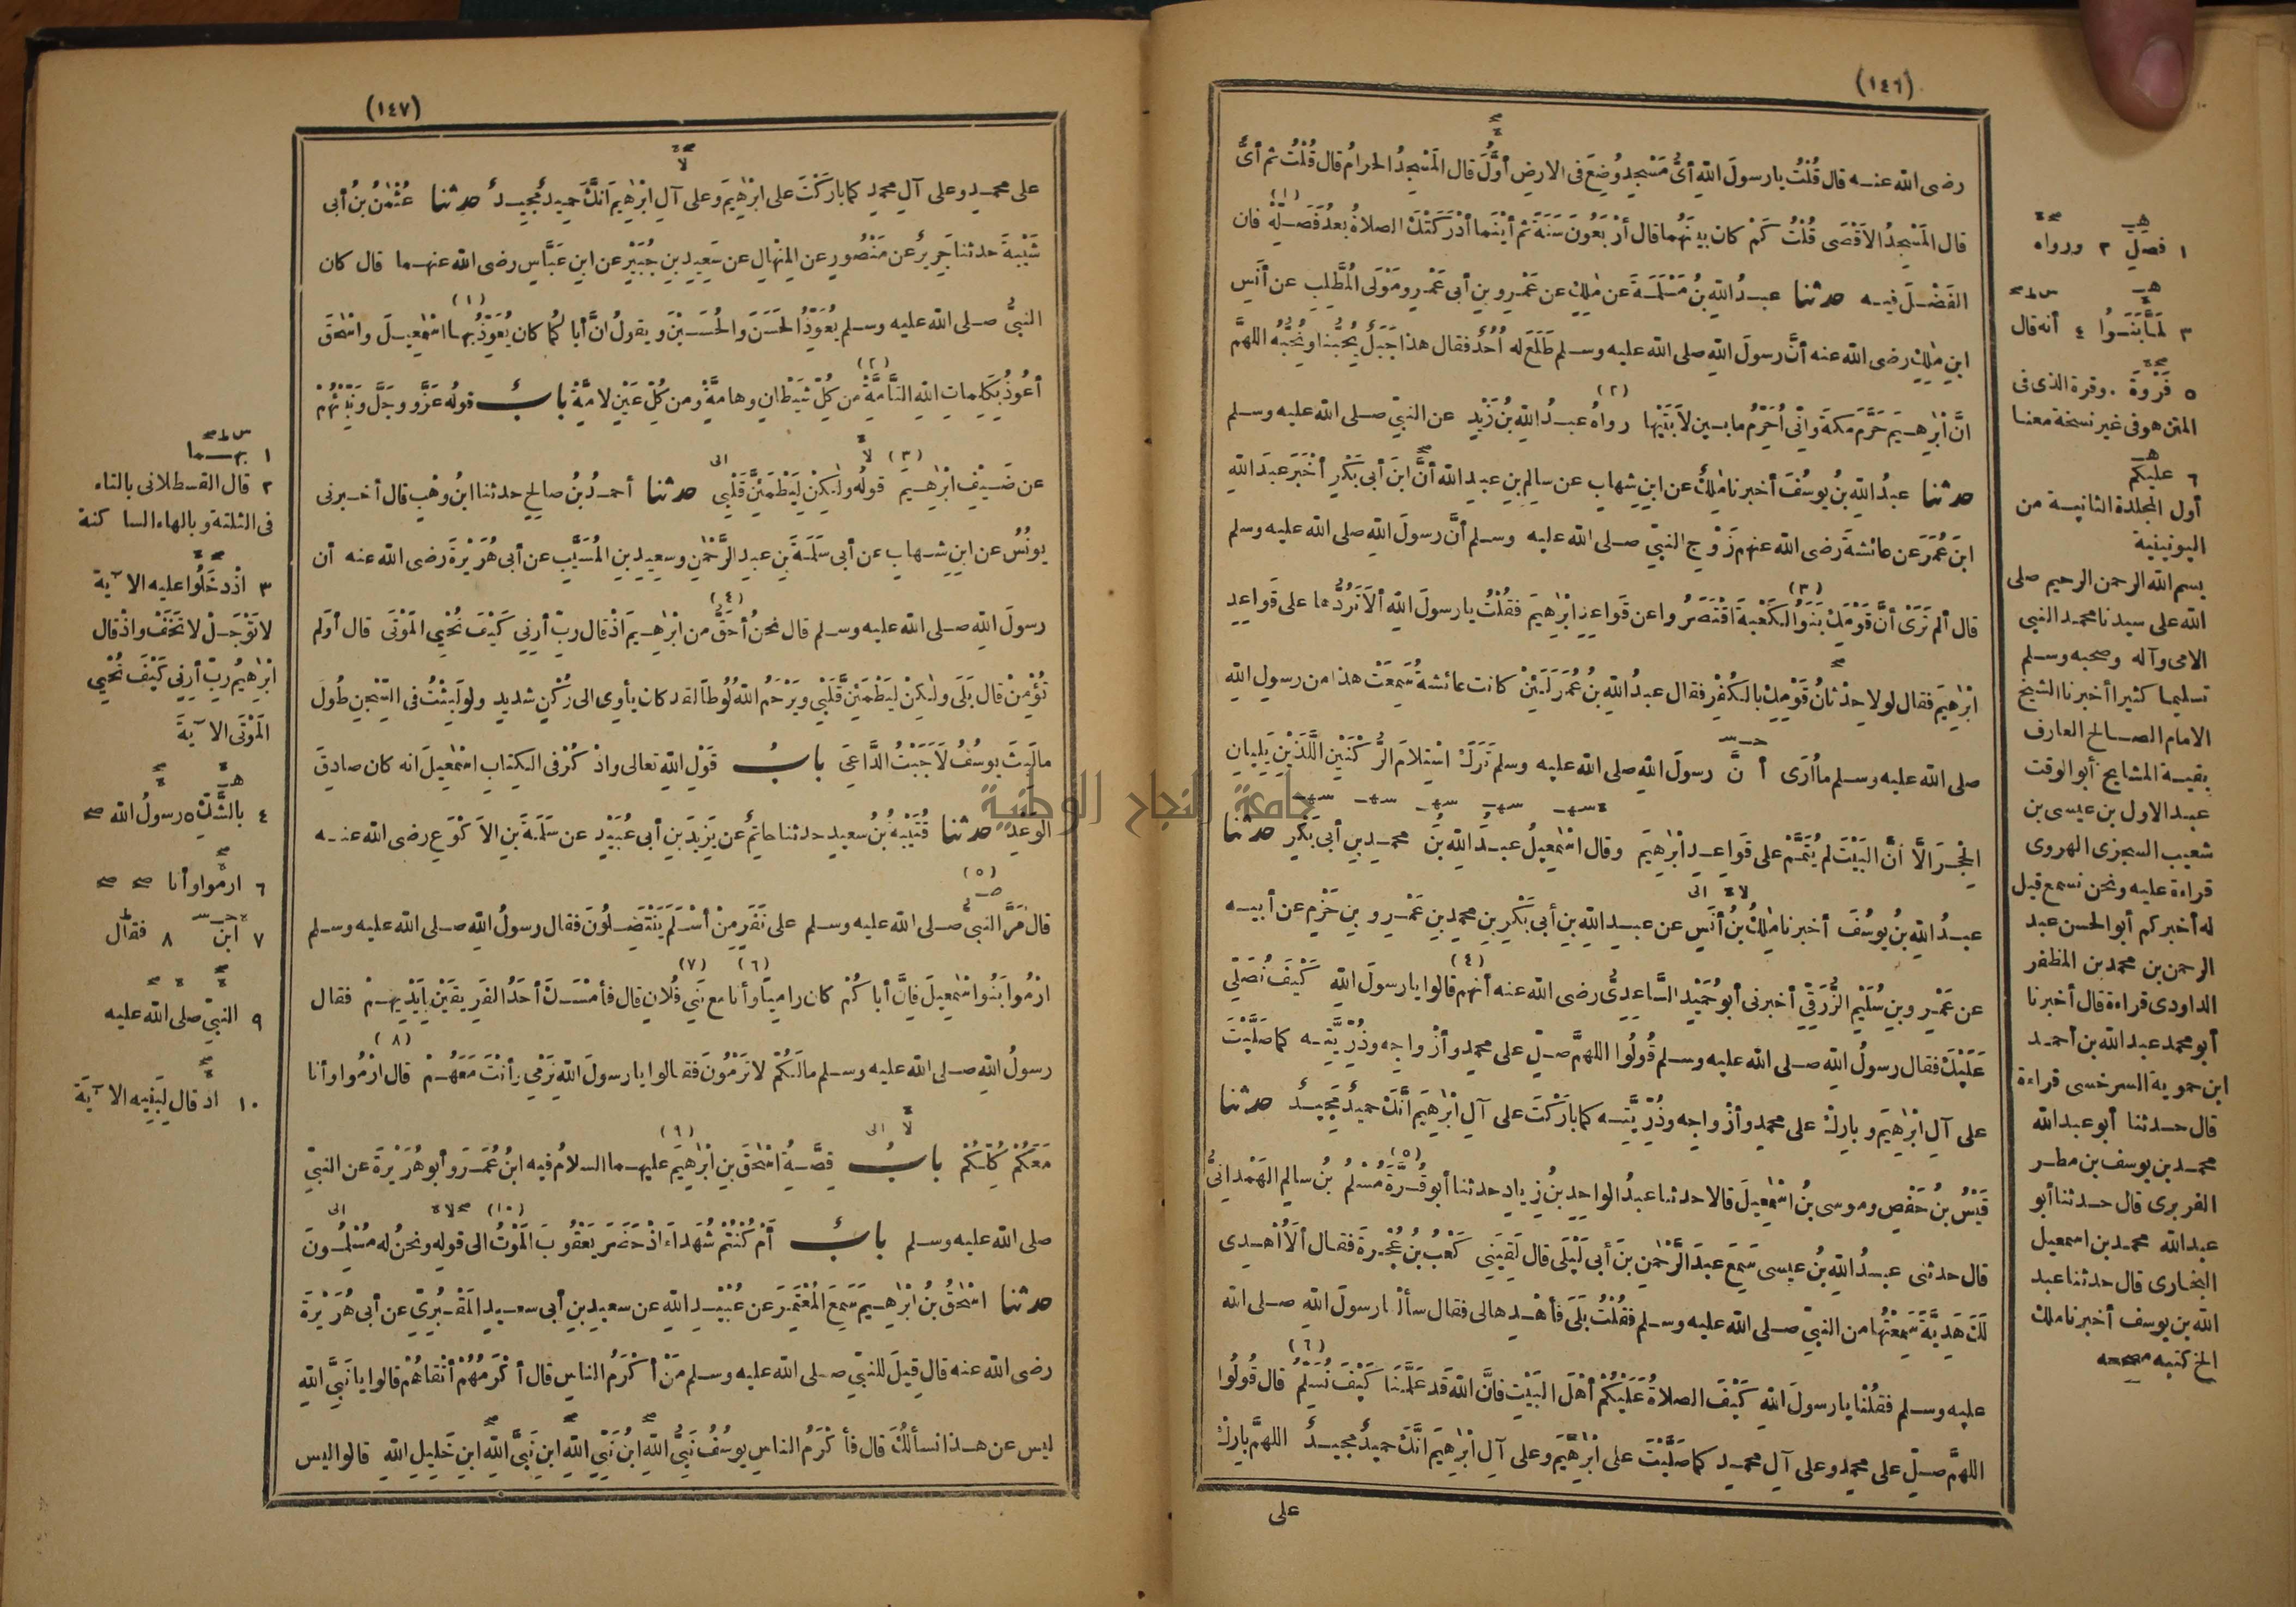 (١٤٦)
رضى الله عنه قال قُلْتُ يا رسولَ اللهِ أىُّ مَسْجِدٍ وُضِعَ فى الارضِ أوَّلُ قال المَسْجِدُ الحرامُ قال قُلْتُ ثم أىٌّ
قال المَسْجِدُ الاَقْصَى قُلْتُ كَمْ كان بينَهُما قال أرْبَعُونَ سَنَةً ثم أيْنَما أدْرَكَتْكَ الصلاةُ بعدُ فَصَلِّهْ فان
الفَضْلَ فيه حدثنا عبدُ اللهِ بنُ مَسْلَمَةَ عن مٰلِكٍ عن عَمْرِو بنِ أبى عَمْرٍو مَوْلَى المُطَّلِبِ عن أنَسِ
ابنِ مٰلِكٍ رضى الله عنه أنَّ رسولَ اللهِ صلى الله عليه وسلم طَلَعَ له أُحُدٌ فقال هذا جَبَلٌ يُحِبُّنا ونُحِبُّه اللهمَّ
انَّ ابْرٰهِيمَ حَرَّمَ مكةَ وانّى أُحَرِّمُ ما بين لاَبَتَيْها رواهُ عبدُ اللهِ بنُ زَيْدٍ عن النبىّ صلى الله عليه وسلم
حدثنا عبدُ اللهِ بنُ يوسُفَ أخبرنا مٰلِكٌ عن ابنِ شِهابٍ عن سالمِ بنِ عبدِ الله أنَّ ابنَ أبى بَكْرٍ أخْبَرَ عبدَ اللهِ
ابنَ عُمَرَ عن عائشةَ رضى الله عنهم زَوْجِ النبىّ صلى الله عليه وسلم أنَّ رسولَ اللهِ صلى الله عليه وسلم
قال ألم تَرَىْ أنَّ قَوْمَكِ بَنَوُا الكَعْبَةَ اقْتَصَرُوا عن قَواعِدِ ابْرٰهِيمَ فقُلْتُ يا رسولَ اللهِ ألاَ تَرُدُّها على قَواعِدِ
ابْرٰهِيمَ فقال لولا حِدْثانُ قَوْمِكِ بالكُفْرِ فقال عبدُ اللهِ بنُ عُمَرَ لَئِنْ كانت عائشةُ سَمِعَتْ هذا من رسولِ اللهِ
صلى الله عليه وسلم ما أُرَى أنَّ رسولَ اللهِ صلى الله عليه وسلم تَرَكَ اسْتِلامَ الرُّكْنَيْنِ اللَّذَيْنِ يَلِيانِ
الحِجْرَ الَّا أنَّ البَيْتَ لم يُتَمَّمْ على قَواعِدِ ابْرٰهِيمَ وقال اسْمٰعِيلُ عبدُ اللهِ بنُ محمدِ بنِ أبى بَكْرٍ حدثنا
عبدُ اللهِ بنُ يوسُفَ أخبرنا مٰلِكُ بنُ أنَسٍ عن عبدِ اللهِ بنِ أبى بَكْرِ بنِ محمدِ بنِ عَمْرِو بنِ حَزْمٍ عن أبيه
عن عَمْرِو بنِ سُلَيْمٍ الزُّرَقِىِّ أخبرنى أبو حُمَيْدٍ السَّاعِدِىُّ رضى الله عنه أنهم قالوا يا رسولَ اللهِ كَيْفَ نُصَلِّى
عَلَيْكَ فقال رسولُ اللهِ صلى الله عليه وسلم قُولُوا اللهمَّ صلّ على محمدٍ وأزْواجِه وذُرِّيَّتِه كما صَلَّيْتَ
على آلِ ابْرٰهِيمَ وبارِكْ على محمدٍ وأزْواجِه وذُرِّيَّتِه كما بارَكْتَ على آلِ ابْرٰهِيمَ انَّكَ حميدٌ مَجِيدٌ حدثنا
قَيْسُ بنُ حَفْصٍ وموسى بنُ اسْمٰعِيلَ قالا حدثنا عبدُ الواحِدِ بنُ زِيادٍ حدثنا أبو قُرَّةَ مُسْلِمُ بنُ سالمٍ الهَمْدانىُّ
قال حدثنى عبدُ اللهِ بنُ عيسى سَمِعَ عبدَ الرَّحْمٰنِ بنَ أبى لَيْلَى قال لَقِيَنِى كَعْبُ بنُ عُجْرةَ فقال ألاَ أُهْدِى
لَكَ هَدِيَّةً سَمِعْتُها من النبىّ صلى الله عليه وسلم فقُلْتُ بَلَى فأهْدِها لى فقال سألْنا رسولَ اللهِ صلى الله
عليه وسلم فقُلْنا يا رسولَ اللهِ كَيْفَ الصلاةُ عَلَيْكُمْ أهْلَ البَيْتِ فانَّ اللهَ قد عَلَّمَنا كَيْفَ نُسَلِّمُ قال قُولُوا
اللهمَّ صلّ على محمدٍ وعلى آلِ محمدٍ كما صَلَّيْتَ على ابْرٰهِيمَ وعلى آلِ ابْرٰهِيمَ انَّكَ حميدٌ مجيدٌ اللهمَّ بارِكْ
على
١ فصل ٢ ورواه
٣ لَمَّا بَنَوُا ٤ أنه قال
٥ فَرْوَةَ . وقرة الذى فى
المتن هو فى غير نسخة معنا
٦ عليكم
أول المجلدة الثانية من
اليونينية
بسم الله الرحمن الرحيم صلى
الله على سيدنا محمد النبى
الامى وآله وصحبه وسلم
تسليما كثيرا أخبرنا الشيخ
الامام الصالح العارف
بقية المشايخ أبو الوقت
عبد الاول بن عيسى بن
شعيب السجزى الهروى
قراءة عليه ونحن نسمع قيل
له أخبركم أبو الحسن عبد
الرحمن بن محمد بن المظفر
الداودى قراءة قال أخبرنا
أبو محمد عبد الله بن أحمد
ابن حموية السرخسى قراءة
قال حدثنا أبو عبد الله
محمد بن يوسف بن مطر
الفربرى قال حدثنا أبو
عبد الله محمد بن اسمعيل
البخارى قال حدثنا عبد
الله بن يوسف أخبرنا ملك
الخ كتبه مصححه
(١٤٧)
على محمدٍ وعلى آلِ محمدٍ كما بارَكْتَ على ابْرٰهِيمَ وعلى آلِ ابْرٰهِيمَ انَّكَ حميدٌ مجيدٌ حدثنا عُثْمٰنُ بنُ أبى
شَيْبَةَ حدثنا جَرِيرٌ عن مَنْصُورٍ عن المِنْهالِ عن سَعِيدِ بنِ جُبَيْرٍ عن ابنِ عَبَّاسٍ رضى الله عنهما قال كان
النبىُّ صلى الله عليه وسلم يُعَوِّذُ الحَسَنَ والحُسَيْنَ ويقولُ انَّ أباكُما كان يُعَوِّذُ بها اسْمٰعِيلَ واسْحٰقَ
أعُوذُ بكَلِماتِ اللهِ التَّامَّةْ من كُلّ شَيْطانٍ وهامَّةْ ومن كُلّ عَيْنٍ لامَّةْ بابُ قولُه عزَّ وجَلَّ ونَبِّئْهُمْ
عن ضَيْفِ ابْرٰهِيمَ قولُه ولٰكِنْ لِيَطْمَئِنَّ قَلْبِى حدثنا أحمدُ بنُ صالحٍ حدثنا ابنُ وهْبٍ قال أخبرنى
يونُسُ عن ابنِ شهابٍ عن أبى سَلَمَةَ بنِ عبدِ الرَّحْمٰنِ وسعيدِ بنِ المُسَيَّبِ عن أبى هُرَيْرةَ رضى الله عنه أن
رسولَ اللهِ صلى الله عليه وسلم قال نحنُ أحَقُّ من ابْرٰهِيمَ اذْ قال رَبّ أرِنِى كَيْفَ تُحْيِى المَوْتَى قال أوَلم
تُؤْمِنْ قال بَلَى ولٰكِنْ لِيَطْمَئِنَّ قَلْبِى ويَرْحَمُ اللهُ لُوطًا لقد كان يأوِى الى رُكْنٍ شديدٍ ولو لَبِثْتُ فى السِّجْنِ طُولَ
ما لَبِثَ يوسُفُ لَاَجَبْتُ الدَّاعِىَ بابُ قَوْلِ اللهِ تعالى واذْكُرْ فى الكِتابِ اسْمٰعِيلَ انه كان صادِقَ
الوَعْدِ حدثنا قُتَيْبَةُ بنُ سعيدٍ حدثنا حاتِمٌ عن يَزِيدَ بنِ أبى عُبَيْدٍ عن سَلَمَةَ بنِ الاَكْوَعِ رضى الله عنه
قال مَرَّ النبىُّ صلى الله عليه وسلم على نَفَرٍ مِنْ أسْلَمَ يَنْتَضِلُونَ فقال رسولُ اللهِ صلى الله عليه وسلم
ارْمُوا بَنِى اسْمٰعِيلَ فانَّ أباكُمْ كان رامِيًا وأنا مع بَنِى فُلانٍ قال فأمْسَكَ أحَدُ الفَرِيقَيْنِ بايْدِيهِمْ فقال
رسولُ اللهِ صلى الله عليه وسلم ما لَكُمْ لا تَرْمُونَ فقالوا يا رسولَ اللهِ نَرْمِى وأنْتَ مَعَهُمْ قال ارْمُوا وأنا
مَعَكُمْ كُلِّكُمْ بابُ قِصَّةِ اسْحٰقَ بنِ ابْرٰهِيمَ عليهما السلامُ فيه ابنُ عُمَرَ وأبو هُرَيْرةَ عن النبىّ
صلى الله عليه وسلم بابُ أمْ كُنْتُمْ شُهَداءَ اذْ حَضَرَ يَعْقُوبَ المَوْتُ الى قوله ونحنُ له مُسْلِمُونَ
حدثنا اسْحٰقُ بنُ ابْرٰهِيمَ سَمِعَ المُعْتَمِرَ عن عُبَيْدِ اللهِ عن سعيدِ بنِ أبى سعيدٍ المَقْبُرِىّ عن أبى هُرَيْرةَ
رضى الله عنه قال قِيلَ للنبىّ صلى الله عليه وسلم مَنْ أكْرَمُ الناسِ قال أكْرَمُهُمْ أتْقاهُمْ قالوا يا نَبِىَّ اللهِ
ليس عن هذا نسألُكَ قال فأكْرَمُ الناسِ يوسُفُ نَبِىُّ اللهِ ابنُ نَبِىّ اللهِ ابنِ نَبِىّ اللهِ ابنِ خَلِيلِ اللهِ قالوا ليس
١ بهما
٢ قال القسطلانى بالتاء
فى الثلثة وبالهاء الساكنة
٣ اذْ دخَلُوا عليه الآية
لا تَوْجَلْ لا تَخَفْ واذْ قال
ابْرٰهِيمُ رَبّ أرِنِى كَيْفَ تُحْيِى
المَوْتَى الآيةَ
٤ بالشَّكّ ٥ رسولُ الله
٦ ارمُوا وأنا
٧ ابن ٨ فقال
٩ النبىّ صلى الله عليه
١٠ اذ قال لِبَنِيه الآيَةَ
جامعة النجاح الوطنية